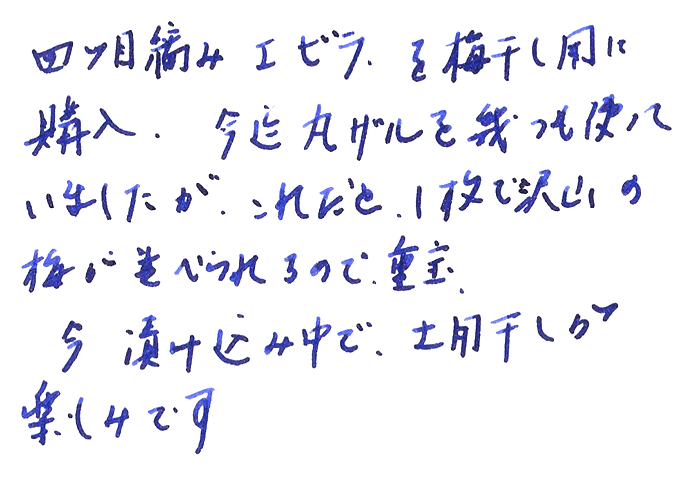 四ツ目編みエビラ、を梅干し用に
購入。今迄丸ザルを幾つも使って
いましたが、これだと、1枚で沢山の
梅が並べられるので、重宝、
今漬け込み中で、土用干しが
楽しみです